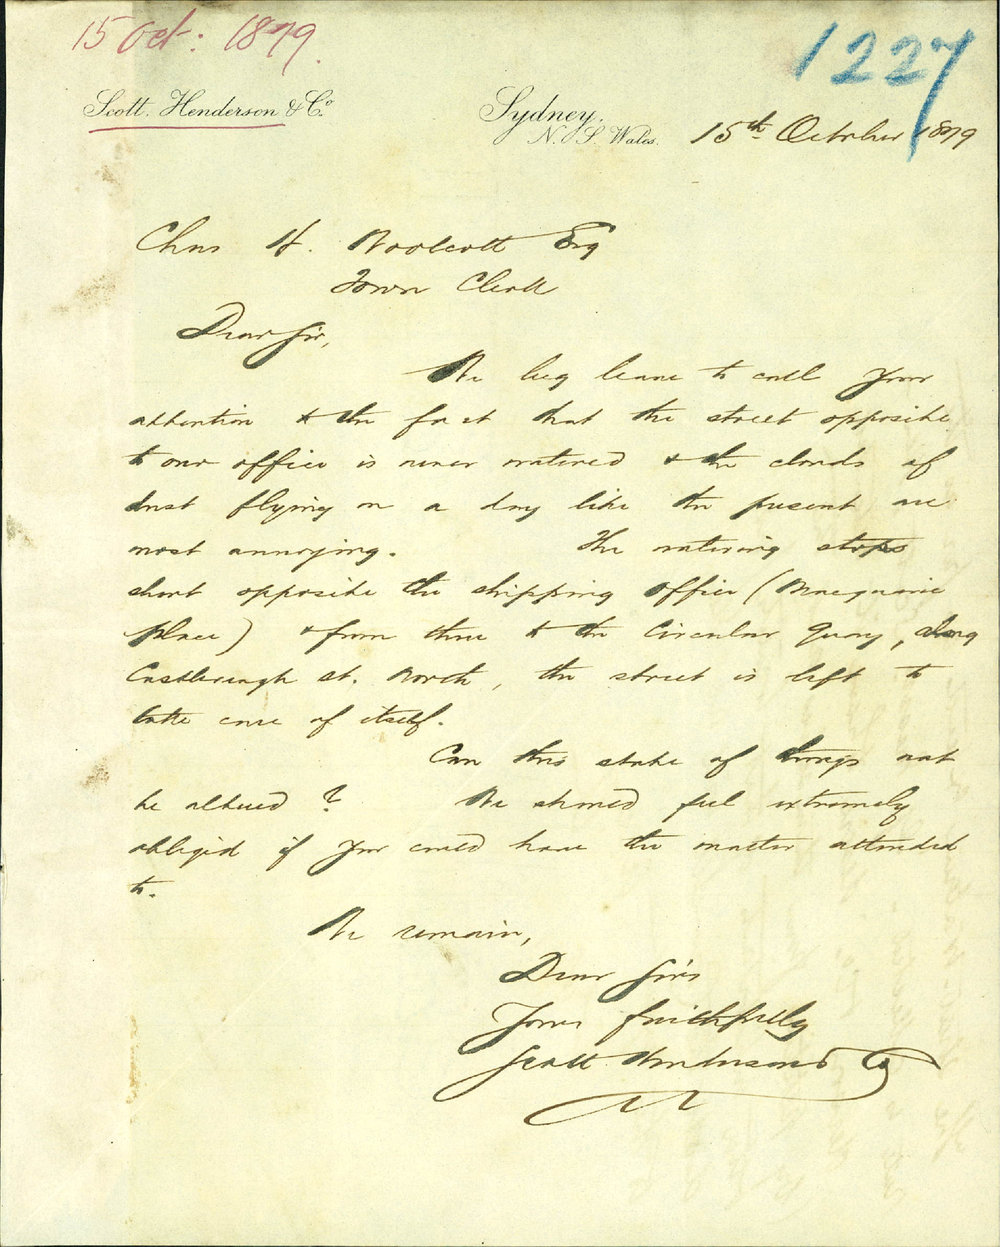 15 Oct: 1879.
1227
Scott, Henderson & Co.
Sydney,
N. S. Wales.
15th October 1879
Chas H. Woolcott Esq
Town Clerk
Dear Sir,
We beg leave to call your
attention to the fact that the street opposite
to our office is never watered & the clouds of
dust flying on a day like the present are
most annoying. The watering stops
short opposite the shipping office (Macquarie
Place) & from there to the Circular Quay, along
Castlereagh st. North, the street is left to
take care of itself.
Can this state of things not
be altered? We should feel extremely
obliged if you could have the matter attended
to.
We remain,
Dear Sirs
Yours faithfully
Scott Henderson & Co